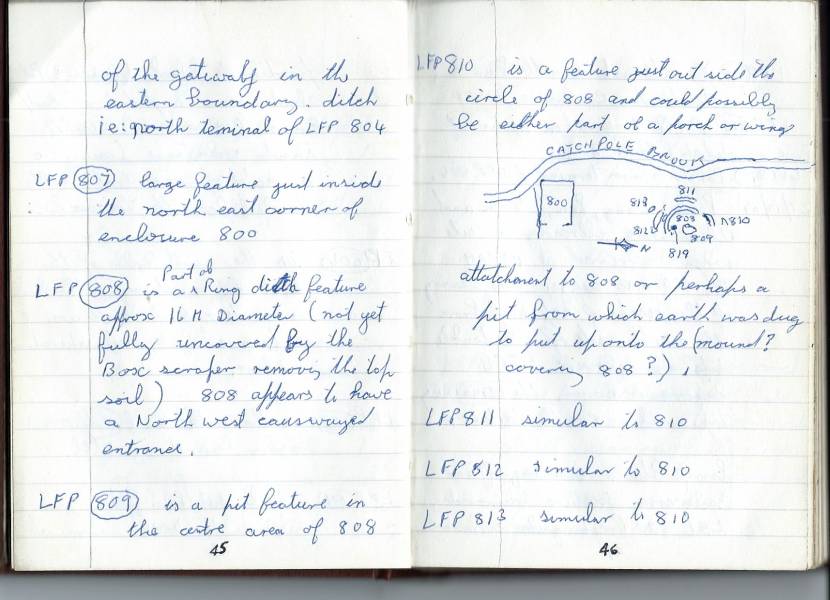 of the gateway in th
eastern Boundary. ditch
ie: north teminal of LFP 804
LFP 807 large feature just inside
the north east corner of
enclosure 800
Part of
LFP 808 is a Ring ditch feature
approx 16 M Diameter (not yet
fully uncovered by the
Box scraper removing the top
soil) 808 appears to have
a North west causwayed
entrance.
LFP 809 is a pit feature in
the centre area of 808
45
LFP 810 is a feature just out side the
circle of 808 and could possibly
be either part of a porch or wing
CATCHPOLE BROOK
800
811
813
808
810
812
809
N
819
attatchment to 808 or perhaps a
pit from which earth was dug
to put up onto the (mound?
covering 808?).
LFP 811 simular to 810
LFP 812 simular to 810
LFP 813 simular to 810
46